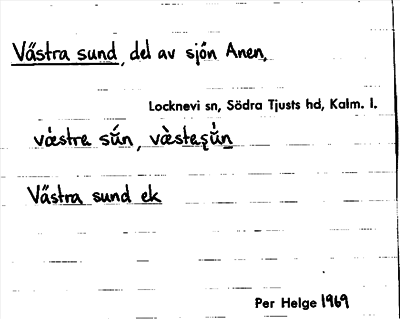 Västra sund, del av sjön Anen,
Locknevi sn, Södra Tjusts hd, Kalm. l.
væ̀stre sŭ́n, væ̀staʂŭ̀n
Västra sund ek
Per Helge 1969